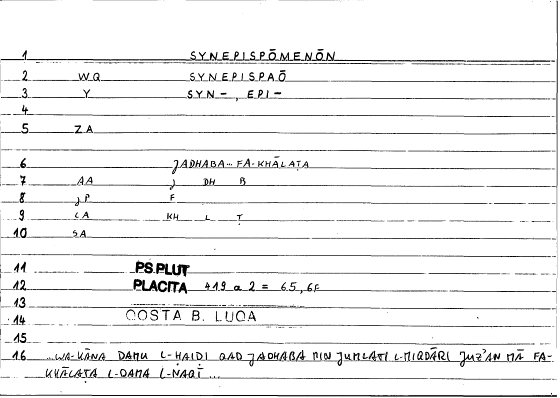 1 SYNEPISPŌMENŌN
2 WQ SYNEPISPAŌ
3 Y SYN-, EPI-
4
5 ZA
6 JADHABA... FA-KHĀLAṬA
7 AA J DH B
8 JP F
9 CA KH L Ṭ
10 SA
11 PS.PLUT
12 PLACITA 419 a 2 = 65,6f
13
14 QOSTA B. LUQA
15
16 ...WA-KĀNA DAMU L-ḤAIḌI QAD JADHABA MIN JUMLATI L-MIQDĀRI JUZ'AN MĀ FA-
KHĀLAṬA L-DAMA L-NAQĪ...